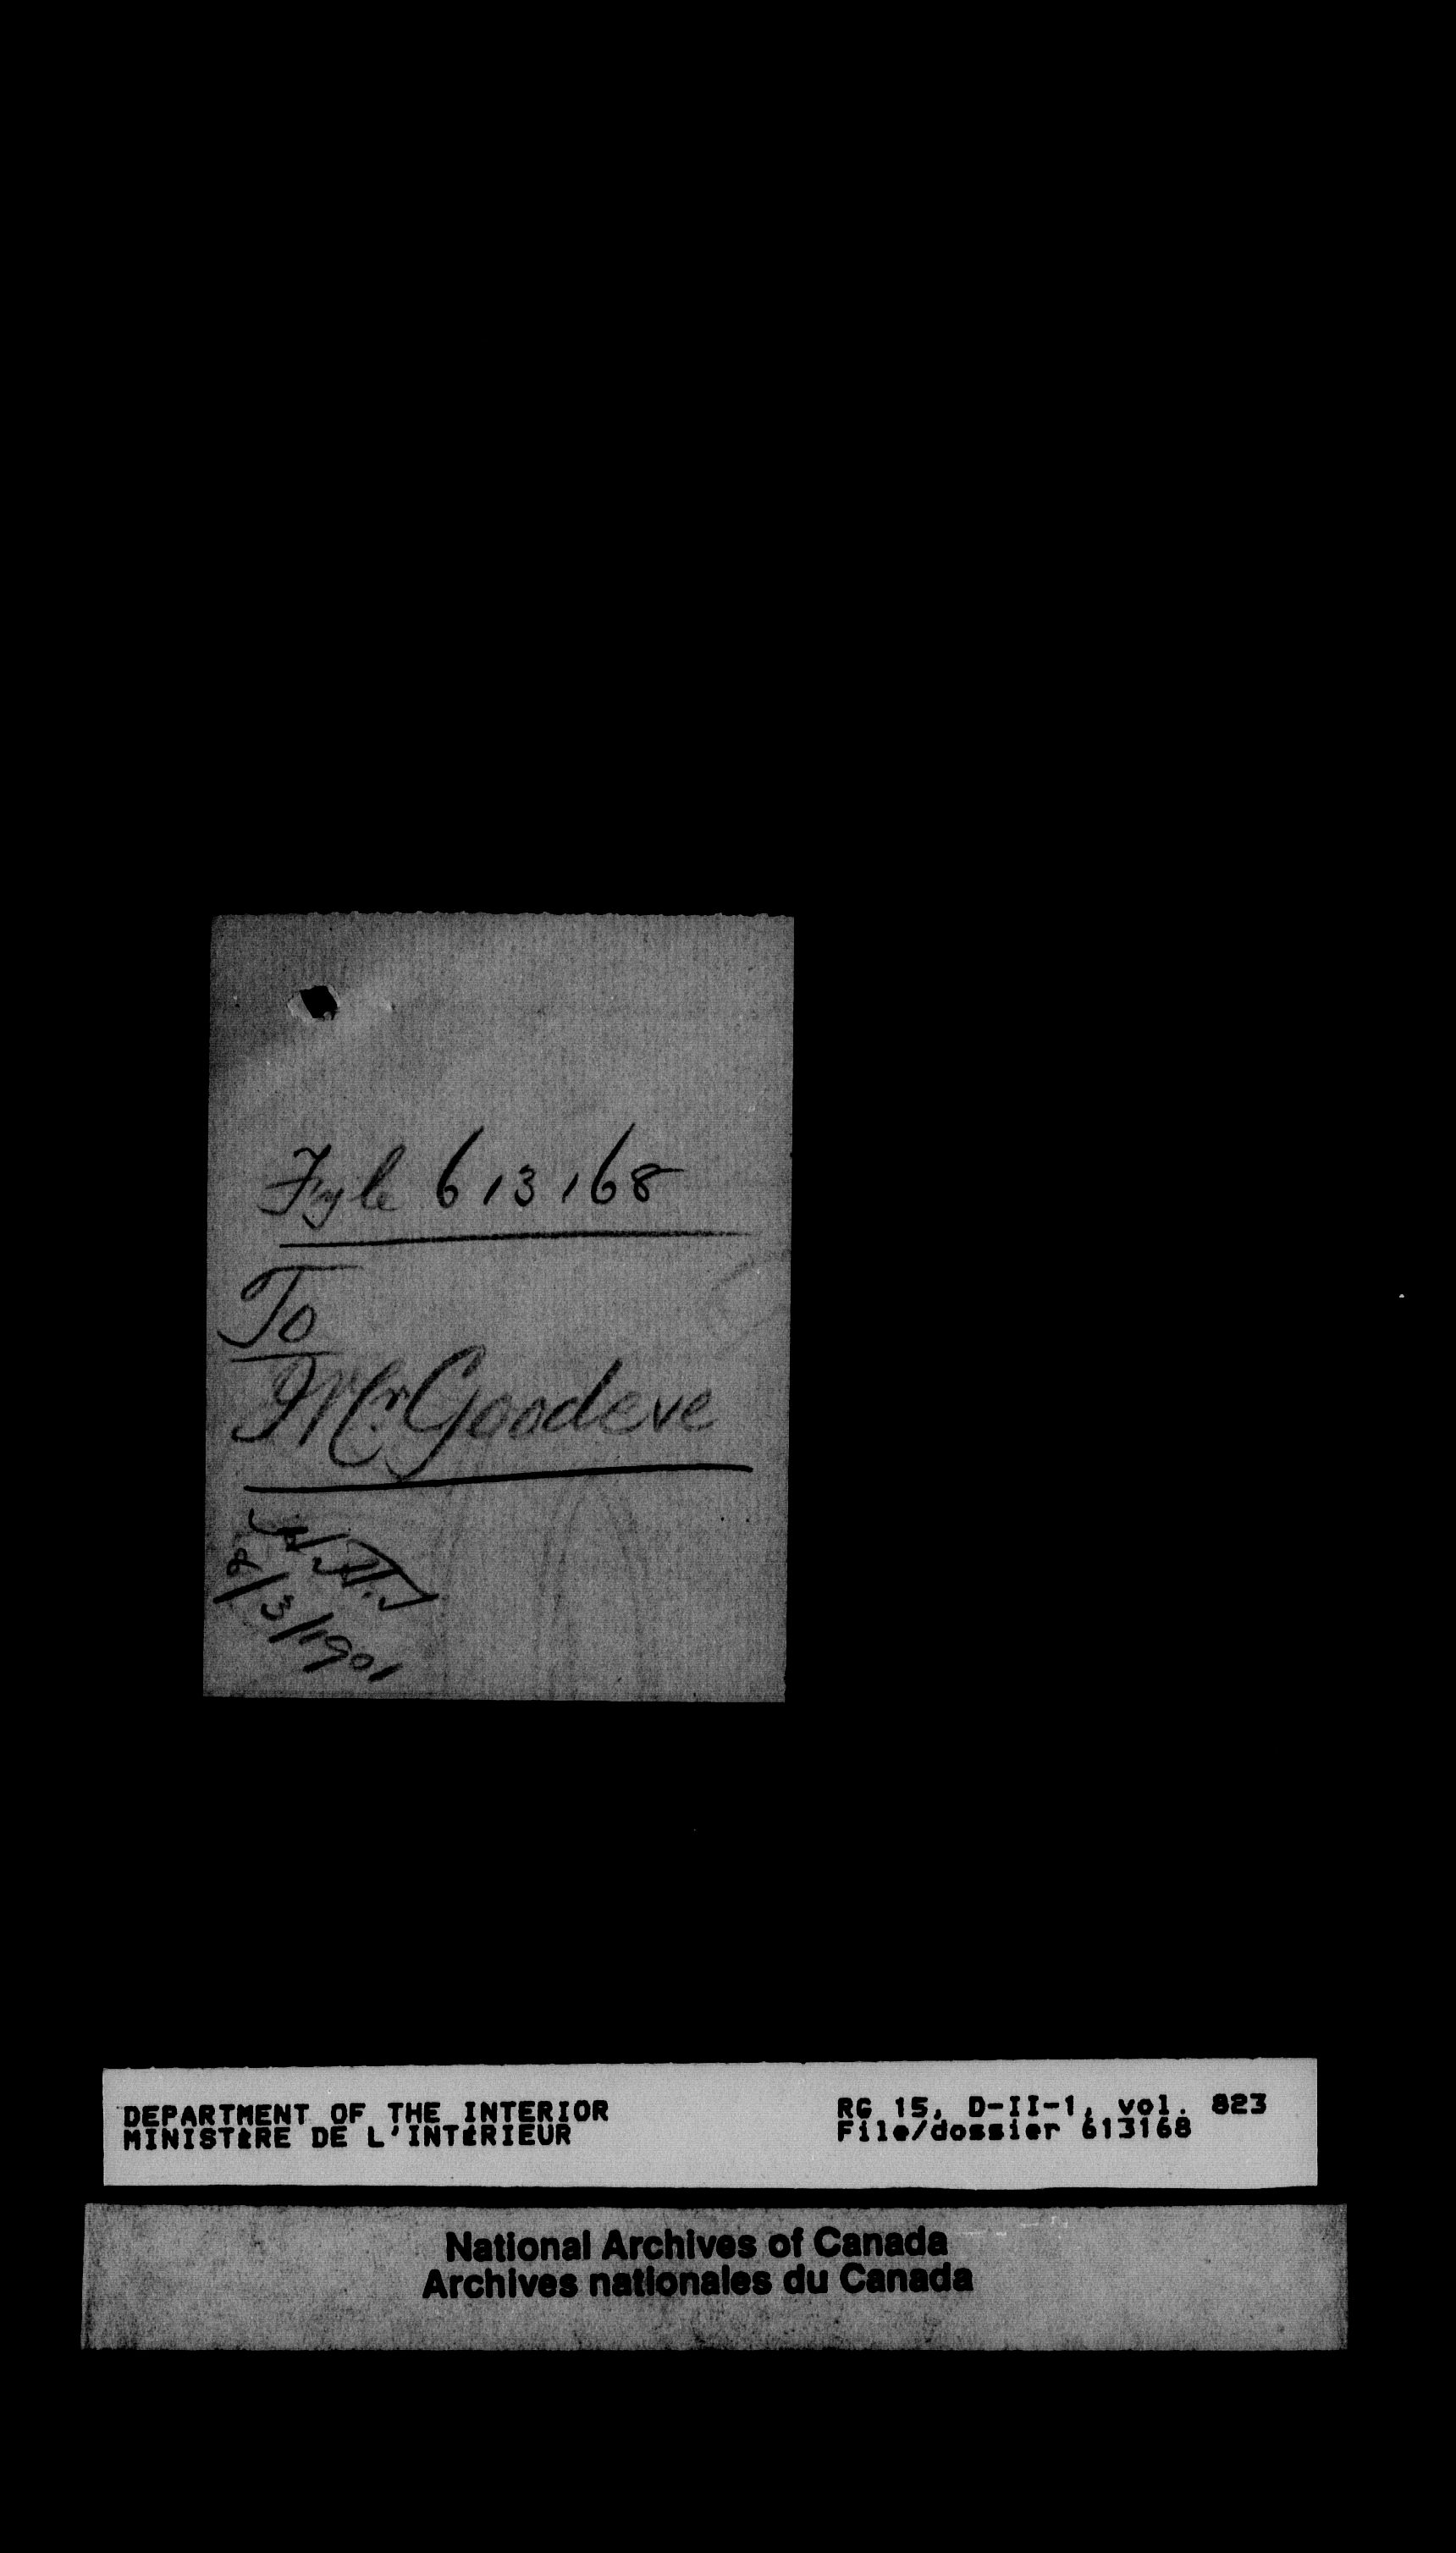 Fyle 613168
To
Mr Goodeve
8/3/1901
DEPARTMENT OF THE INTERIOR
MINISTÈRE DE L'INTÉRIEUR
RG 15, D-II-1, vol. 823
File/dossier 613168
National Archives of Canada
Archives nationales du Canada